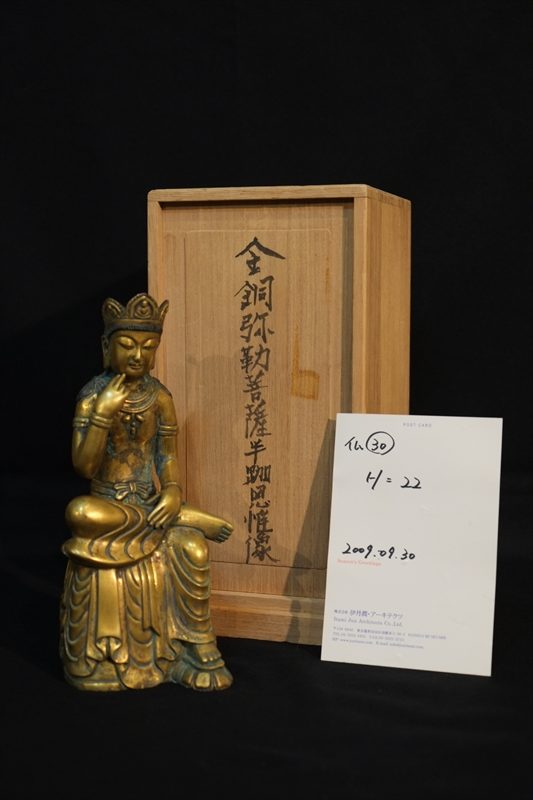 金銅弥勒菩薩半跏思惟像
POST CARD
仏 30
H = 22
2009.09.30
Season's Greetings
株式会社 伊丹潤・アーキテクツ
Itami Jun Architects Co. Ltd.